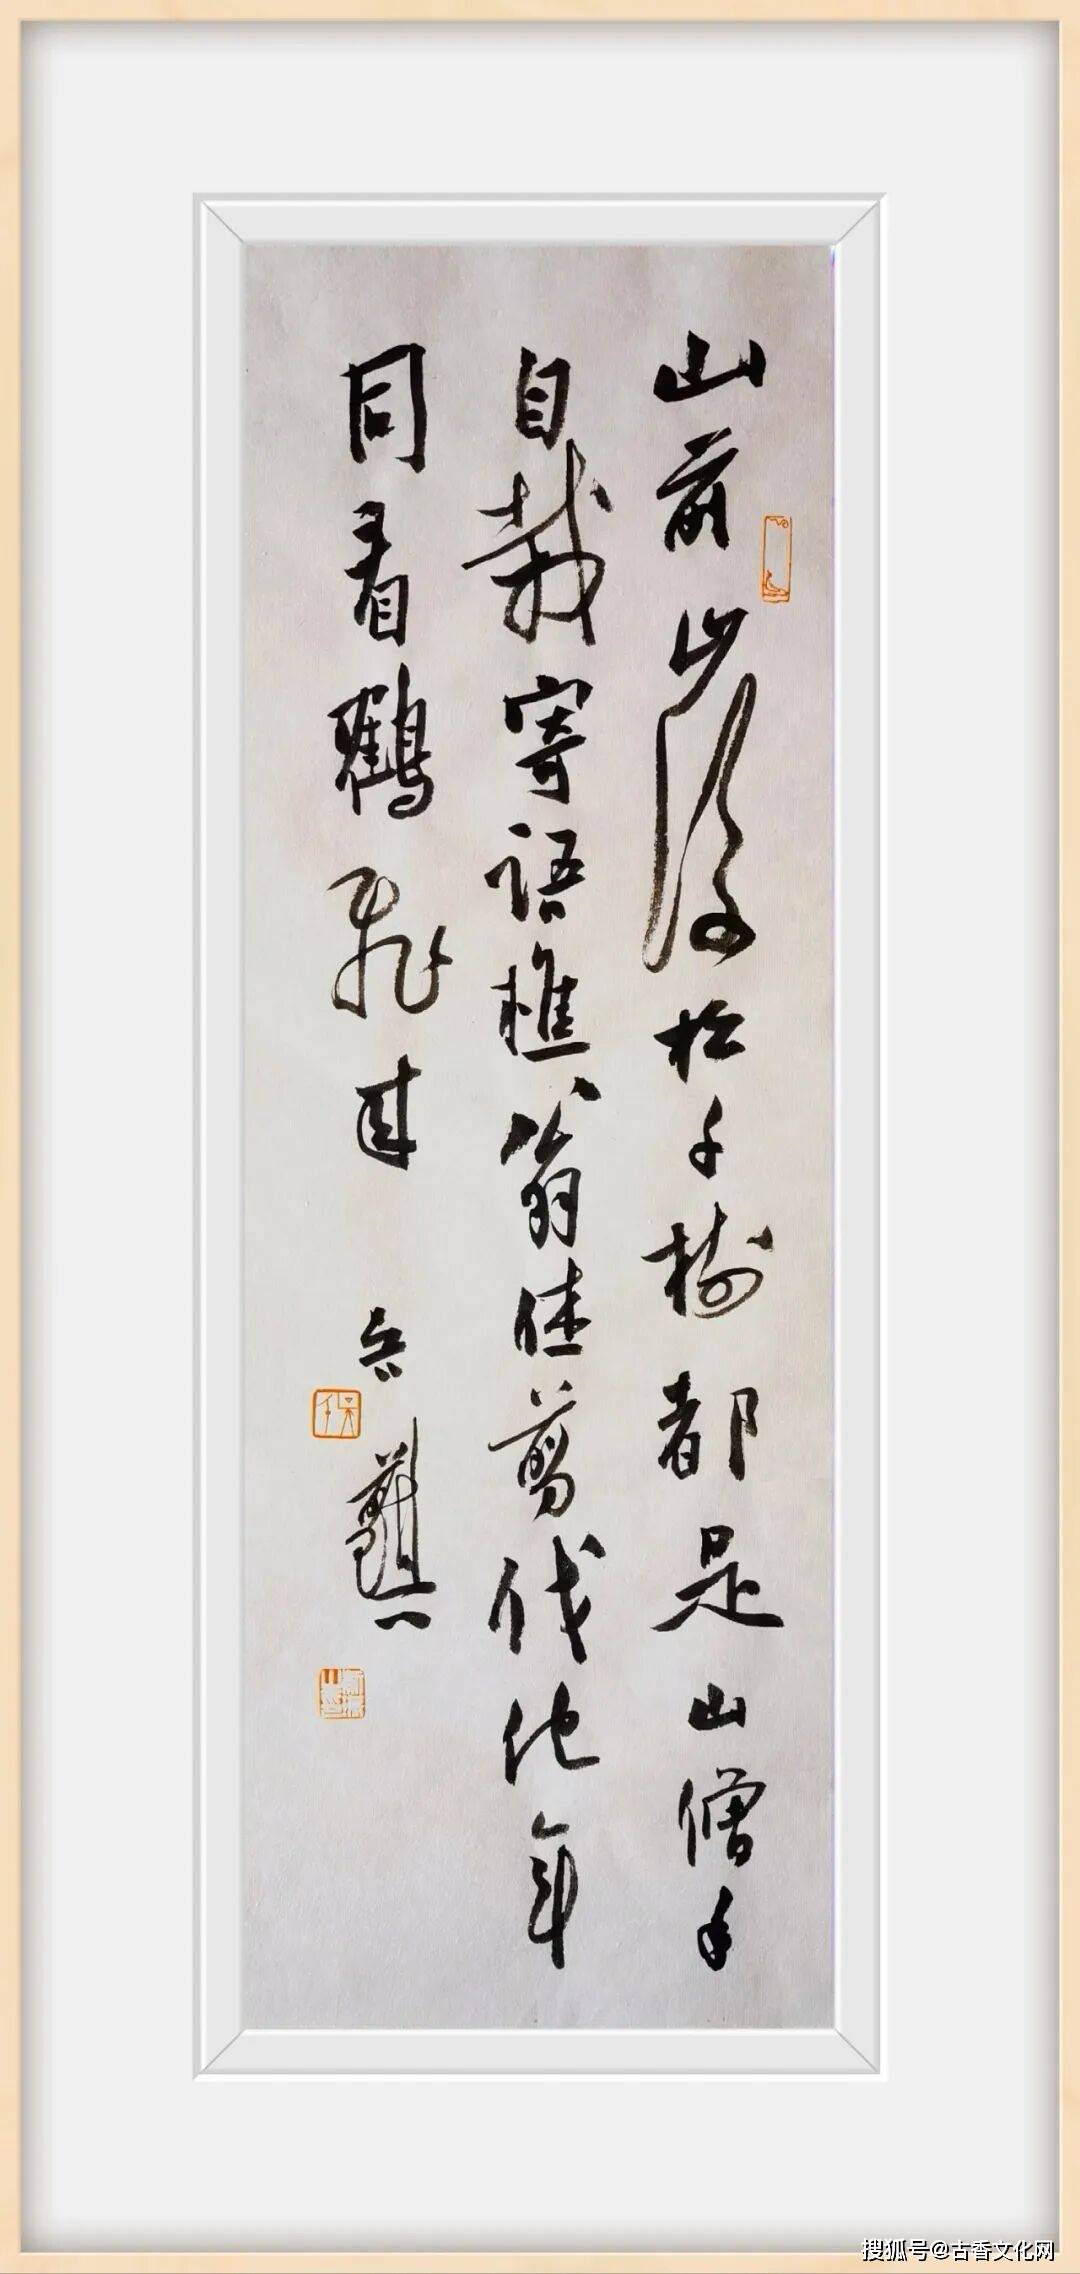 山前山後松千樹都是山僧手
自栽寄语樵翁剪伐他年
同看鶴飛来
搜狐号@古香文化网